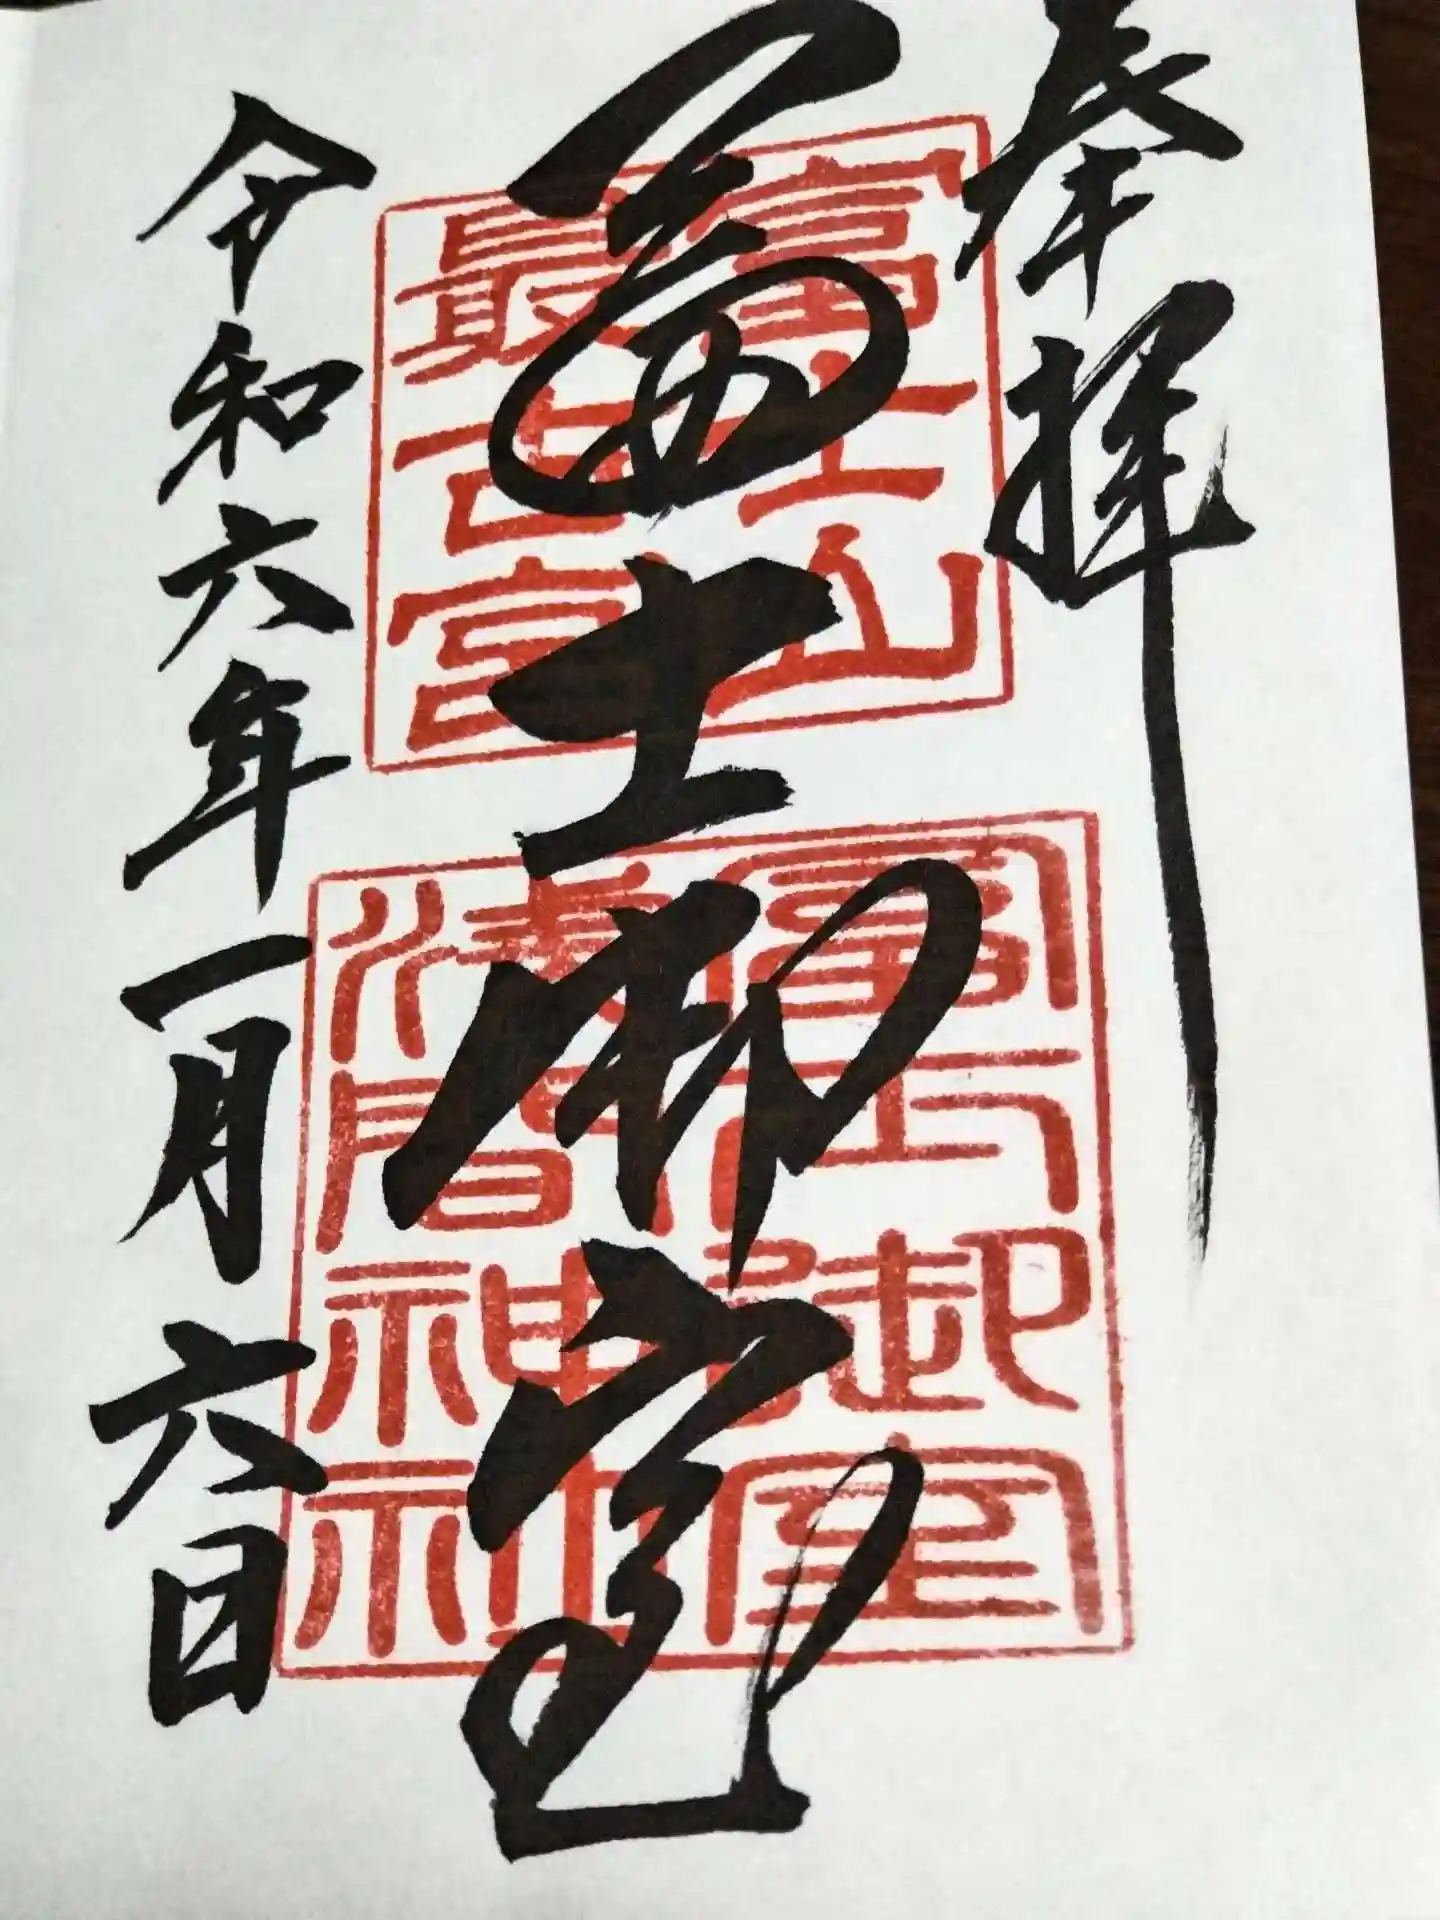 奉拝
冨士御室
富士山
最古宮
冨士御室
淺間神社
令和六年一月六日